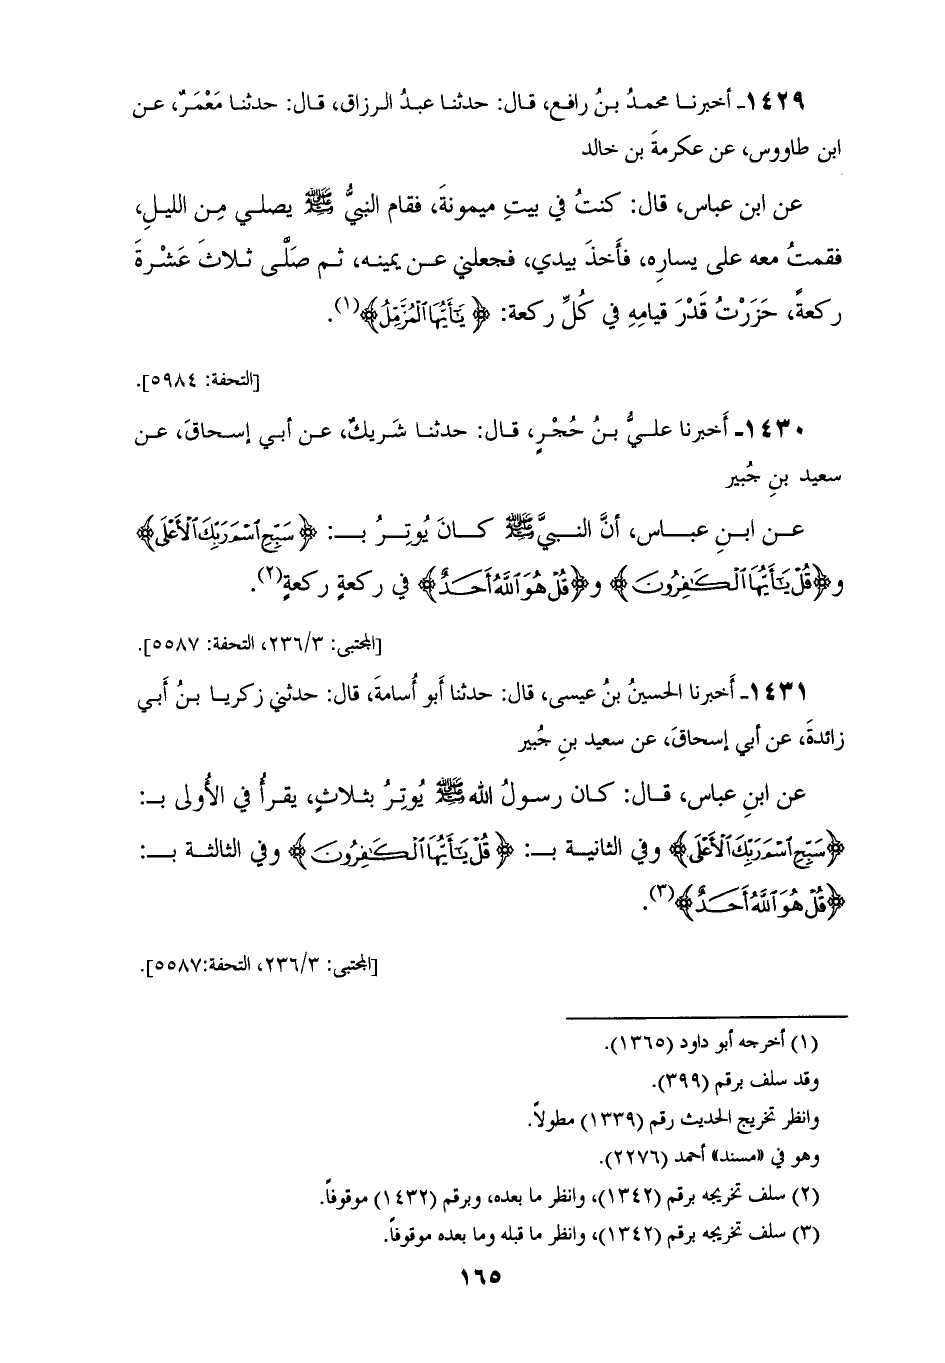 ١٤٢٩ـ أخبرنـا محمدُ بـنُ رافع، قـال: حدثنـا عبدُ الـرزاق، قـال: حدثنـا مَعْمَرٌ، عـن
ابن طاووس، عن عكرمةَ بن خالد
عن ابن عباس، قال: كنتُ في بيتِ ميمونةَ، فقام النبيُّ ﷺ يصلي مِن الليلِ،
فقمتُ معه على يسارِه، فأَخذَ بيدي، فجعلني عـن يمينـه، ثـم صَلَّى ثـلاثَ عَشْرةَ
ركعةً، حَزَرْتُ قَدْرَ قيامِهِ في كُلِّ ركعة: ﴿يَٰٓأَيُّهَا ٱلْمُزَّمِّلُ﴾(١).
[التحفة: ٥٩٨٤].
١٤٣٠ـ أَخبرنا عليُّ بـنُ حُجْرٍ، قـال: حدثنـا شَريكٌ، عـن أبـي إسـحاقَ، عـن
سعيد بنِ جُبير
عـن ابـنِ عبـاس، أنَّ النـبيَّ ﷺ كـانَ يُوتِـرُ بــ: ﴿سَبِّحِ ٱسْمَ رَبِّكَ ٱلْأَعْلَى﴾
و﴿قُلْ يَٰٓأَيُّهَا ٱلْكَٰفِرُونَ﴾ و﴿قُلْ هُوَ ٱللَّهُ أَحَدٌ﴾ في ركعةٍ ركعةٍ(٢).
[المجتبى: ٢٣٦/٣، التحفة: ٥٥٨٧].
١٤٣١ـ أَخبرنا الحسينُ بنُ عيسى، قال: حدثنا أَبو أُسامةَ، قال: حدثني زكريا بـنُ أَبي
زائدةَ، عن أبي إسحاقَ، عن سعيد بنِ جُبير
عن ابنِ عباس، قـال: كـان رسـولُ اللهﷺ يُوتِـرُ بثـلاثٍ، يقـرأُ في الأُولى بـ:
﴿سَبِّحِ ٱسْمَ رَبِّكَ ٱلْأَعْلَى﴾ وفي الثانيـة بــ: ﴿قُلْ يَٰٓأَيُّهَا ٱلْكَٰفِرُونَ﴾ وفي الثالثـة بــ:
﴿قُلْ هُوَ ٱللَّهُ أَحَدٌ﴾(٣).
[المجتبى: ٢٣٦/٣، التحفة:٥٥٨٧].
(١) أخرجه أبو داود (١٣٦٥).
وقد سلف برقم (٣٩٩).
وانظر تخريج الحديث رقم (١٣٣٩) مطولاً.
وهو في «مسند» أحمد (٢٢٧٦).
(٢) سلف تخريجه برقم (١٣٤٢)، وانظر ما بعده، وبرقم (١٤٣٢) موقوفاً.
(٣) سلف تخريجه برقم (١٣٤٢)، وانظر ما قبله وما بعده موقوفاً.
١٦٥